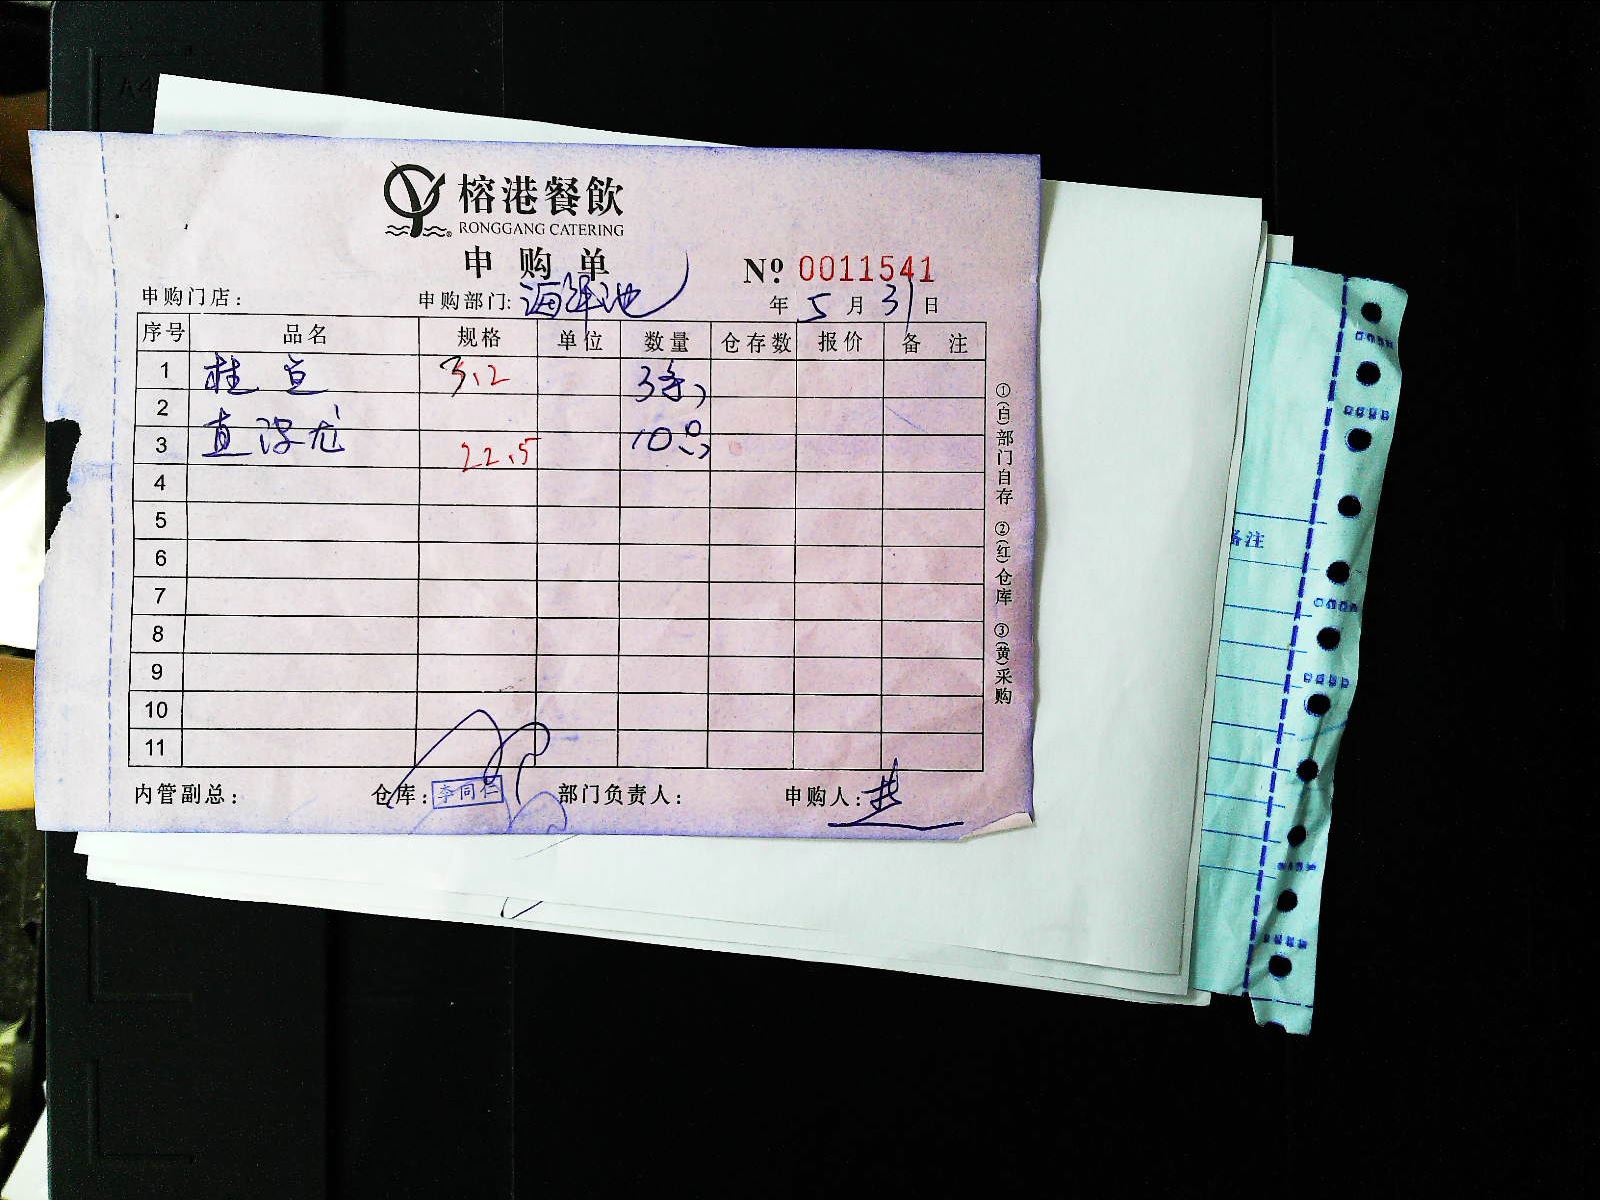 榕港餐飲
RONGGANG CATERING
申购单
№ 0011541
申购门店： 申购部门: 海鲜池 年 5 月 31 日
序号 品名 规格 单位 数量 仓存数 报价 备注
1 桂鱼 3.2 3条
2
3 22.5 10只
4
5
6
7
8
9
10
11
内管副总： 仓库： 李同仁 部门负责人： 申购人：
①(白)部门自存 ②(红)仓库 ③(黄)采购
备注
A4